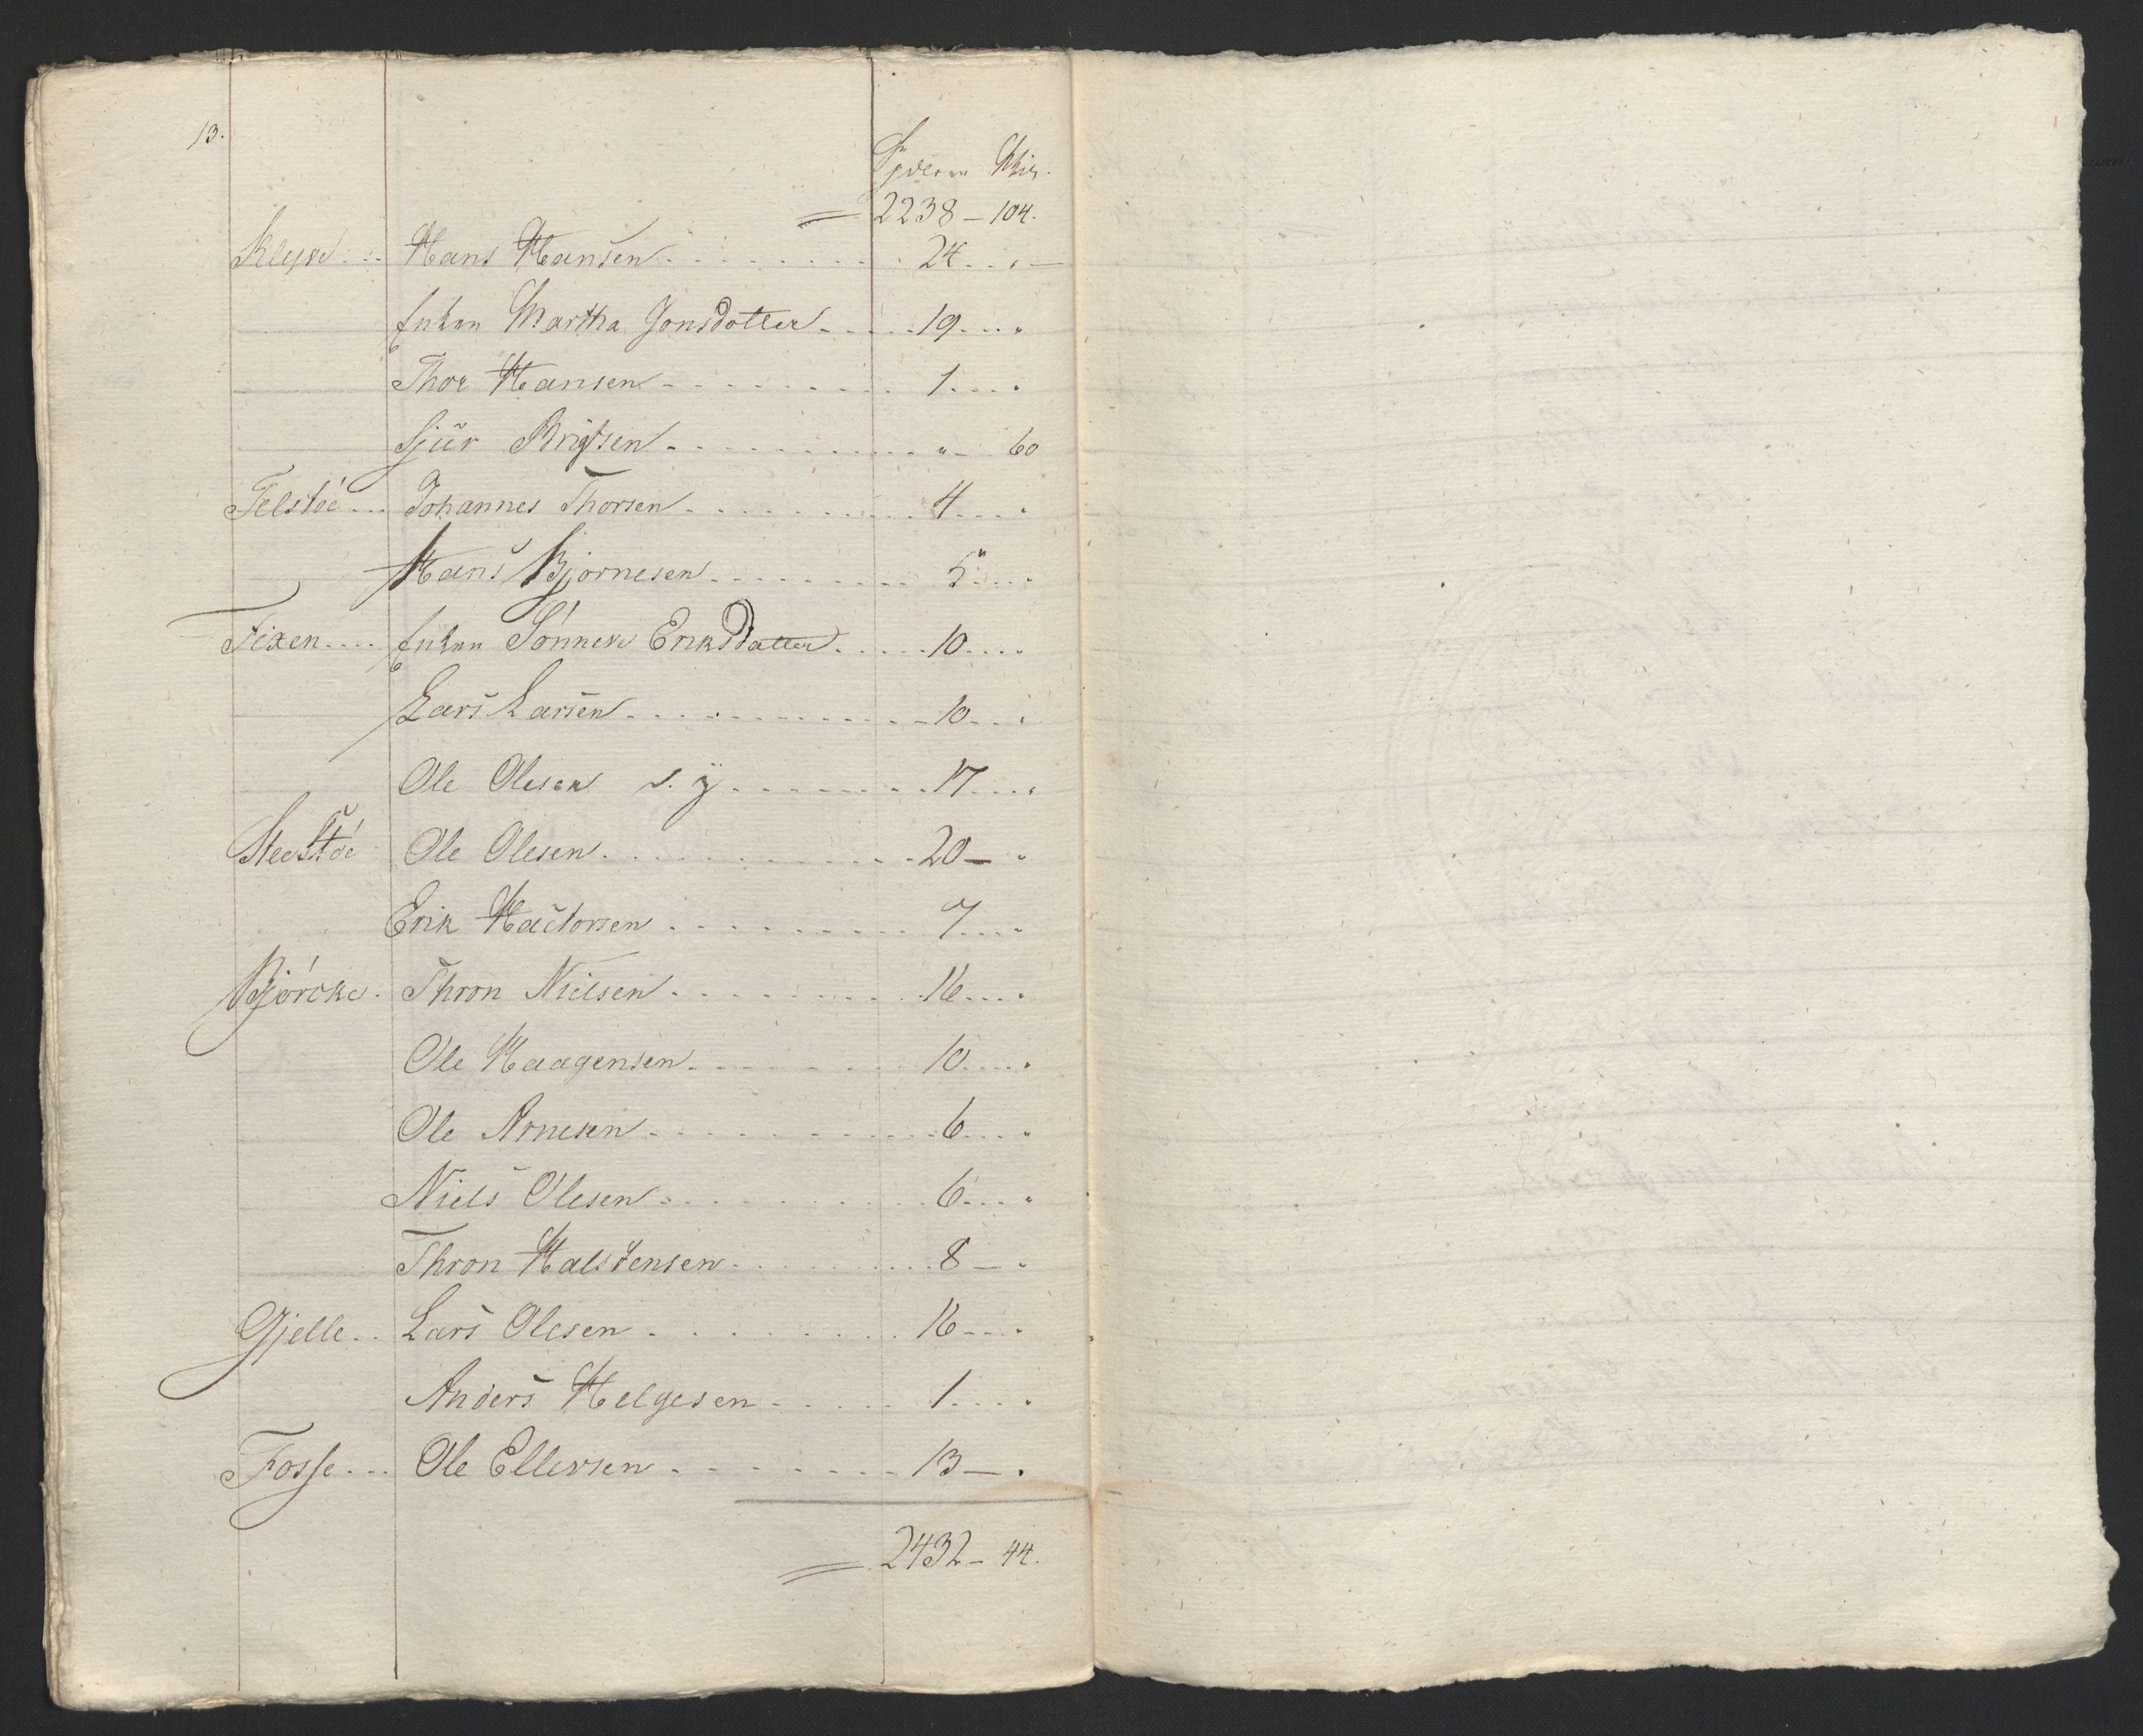 13.
Spdlr Skil.
2238 - 104.
Kleve... Hans Hansen........ 24...
Enken Martha Jonsdotter..... 19....
Thor Hansen-........ 1....
Sjur Brigtsen-......... " - 60
Telstöe... Johannes Thorsen......... 4....
Hans Bjornesen........ 5....
Fixen.... Enken Sönneve Eriksdatter..... 10....
Lars Larsen.......... 10...
Ole Olesen d. y........ 17....
Steestöe Ole Olesen.......... 20 -
Erik Hactorsen........ 7....
Bjórcke. Thron Nielsen........ 16....
Ole Haagensen....... 10....
Ole Arnesen-........ 6....
Niels Olesen........ 6....
Thron Halstensen........ 8 -
Gjelle.. Lars Olesen........ 16...
Anders Helgesen..... 1....
Fosse... Ole Ellevsen........ 13 - .
2432 - 44.